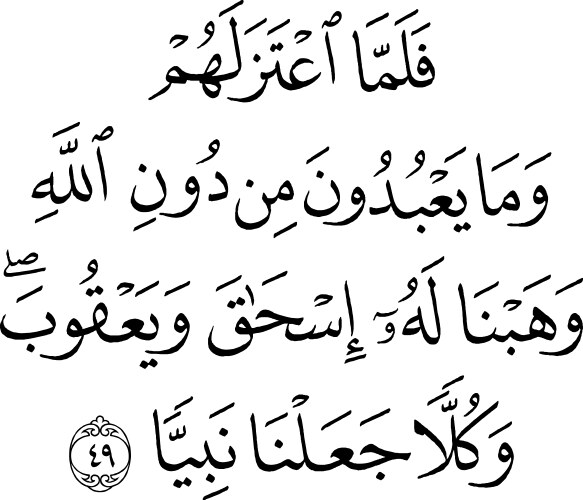 فَلَمَّا ٱعْتَزَلَهُمْ
وَمَا يَعْبُدُونَ مِن دُونِ ٱللَّهِ
وَهَبْنَا لَهُۥٓ إِسْحَٰقَ وَيَعْقُوبَ ۖ
وَكُلًّا جَعَلْنَا نَبِيًّا ٤٩